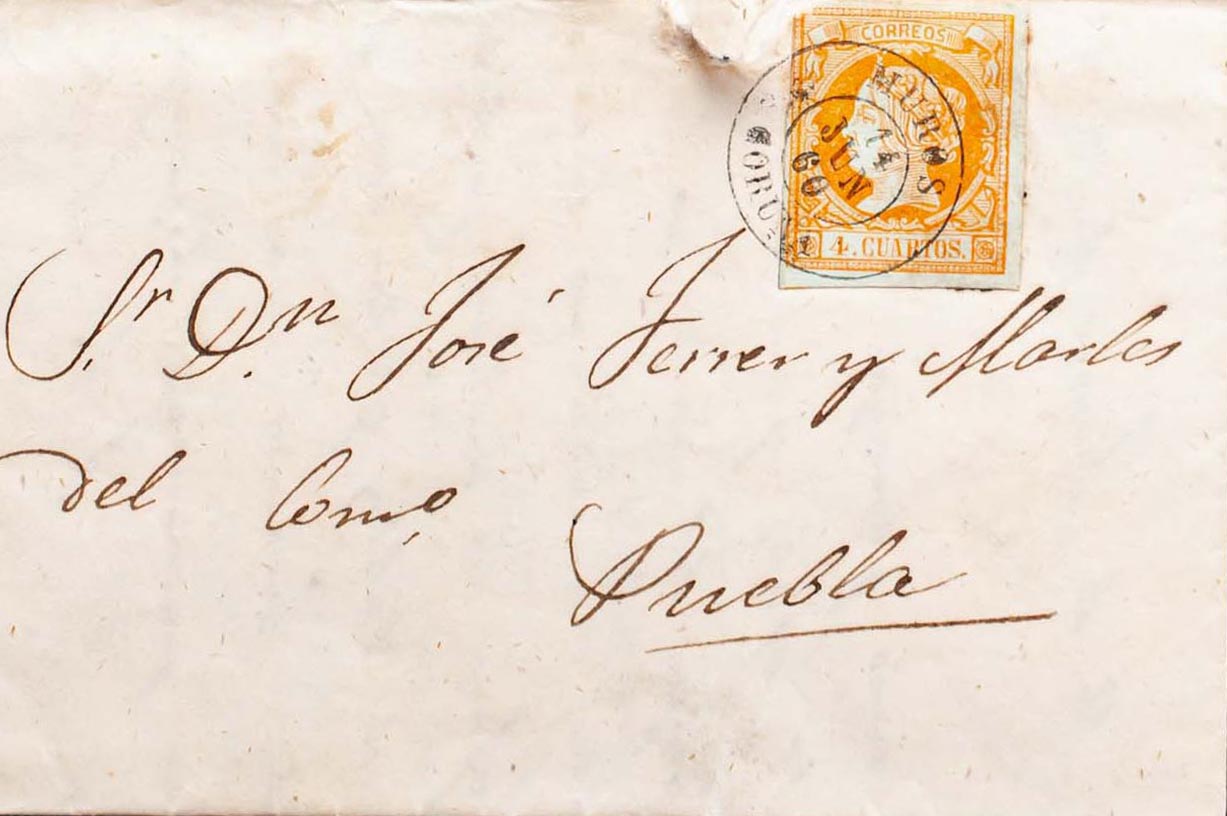 CORREOS
MUROS
14
JUN
60
CORUÑA
4. CUARTOS.
Sr. Dn. José Ferrer y Marles
del Como,
Puebla